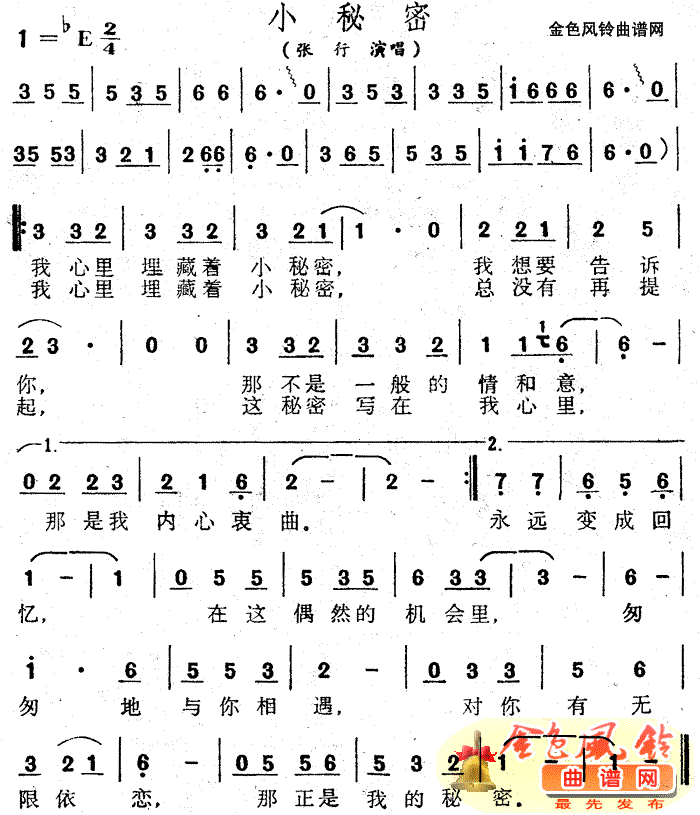 小秘密
1=♭E 2/4
(张 行 演唱)
金色风铃曲谱网
3 5 5 | 5 3 5 | 6 6 | 6· 0 | 3 5 3 | 3 3 5 | i 6 6 6 | 6· 0
35 53 | 3 2 1 | 2 66 | 6·0 | 3 6 5 | 5 3 5 | i i 7 6 | 6·0)
3 3 2 | 3 3 2 | 3 2 1 | 1 · 0 | 2 2 1 | 2 5
我 心里 埋 藏着 小 秘密, 我 想要 告 诉
我 心里 埋 藏着 小 秘密, 总 没有 再 提
2 3 · | 0 0 | 3 3 2 | 3 3 2 | 1 1 6 | 6 -
你, 那 不是 一 般的 情 和意,
起, 这 秘密 写 在 我 心里,
1. 2.
0 2 2 3 | 2 1 6 | 2 - | 2 - :| 7 7 | 6 5 6
那 是我 内 心 衷 曲. 永 远 变 成 回
1 - | 1 | 0 5 5 | 5 3 5 | 6 3 3 | 3 - | 6 -
忆, 在 这 偶 然的 机 会里, 匆
i · 6 | 5 5 3 | 2 - | 0 3 3 | 5 6
匆 地 与 你 相 遇, 对 你 有 无
3 2 1 | 6 - | 0 5 5 6 | 5 3 2 | 1 - | 1 -
限 依 恋, 那 正是 我 的 秘 密.
金色风铃
曲谱网
最先发布